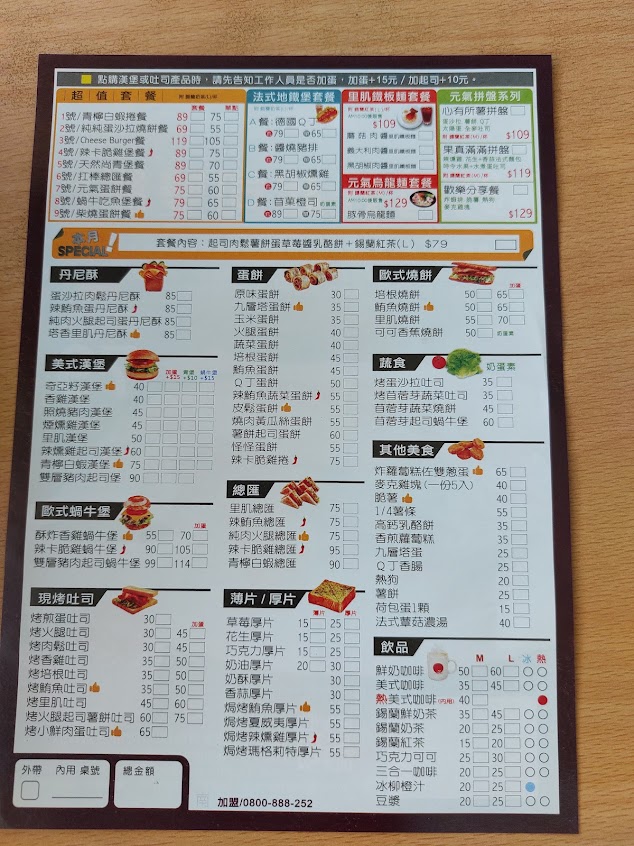 點購漢堡或吐司產品時，請先告知工作人員是否加蛋，加蛋+15元 / 加起司+10元。
超值套餐
套餐 單點
1號/青檸白蝦捲餐 89 75
2號/純純蛋沙拉燒餅餐 69 55
3號/Cheese Burger餐 119 105
4號/辣卡脆雞堡餐 89 75
5號/天然尚青堡餐 89
6號/扛棒總匯餐 89 75
7號/元氣蛋餅餐 75 60
8號/蝸牛吃魚堡餐 69 55
9號/柴燒蛋餅餐 75 60
法式地鐵堡套餐
A餐: 德國QT
79 65
B餐: 醬燒豬排
79 65
C餐: 黑胡椒燻雞
79 65
D餐: 苜菜橙司 奶蛋素
79 65
里肌鐵板麵套餐
$109
蘑菇肉醬
義大利肉醬
黑胡椒肉醬
元氣烏龍麵套餐
$129
豚骨烏龍麵
元氣拼盤系列
心有所薯拼盤
$109
果真滿滿拼盤
$119
歡樂分享餐
$129
本月SPECIAL!
套餐內容：起司肉鬆薯餅蛋草莓醬乳酪餅＋錫蘭紅茶(L) $79
丹尼酥
蛋沙拉肉鬆丹尼酥 85
辣鮪魚蛋丹尼酥 85
純肉火腿起司蛋丹尼酥 85
塔香里肌丹尼酥 85
美式漢堡
加蛋+$15 青堡+$10 蝸牛堡+$15
奇亞籽漢堡 40
香雞漢堡 40
照燒豬肉漢堡 45
煙燻雞漢堡 45
里肌漢堡 50
辣燻雞起司漢堡 60
青檸白蝦漢堡 75
雙層豬肉起司堡 90
歐式蝸牛堡
加蛋
酥炸香雞蝸牛堡 55 70
辣卡脆雞蝸牛堡 90 105
雙層豬肉起司蝸牛堡 99 114
現烤吐司
加蛋
烤煎蛋吐司 30
烤火腿吐司 30 45
烤肉鬆吐司 30 45
烤香雞吐司 35 50
烤培根吐司 35 50
烤鮪魚吐司 35 50
烤里肌吐司 45 60
烤火腿起司薯餅吐司 60 75
烤小鮮肉蛋吐司 65
蛋餅
原味蛋餅 30
九層塔蛋餅 35
玉米蛋餅 35
火腿蛋餅 40
蔬菜蛋餅 40
培根蛋餅 45
鮪魚蛋餅 50
QT蛋餅 50
辣鮪魚蔬菜蛋餅 55
皮鬆蛋餅 60
燒肉黃瓜絲蛋餅 55
薯餅起司蛋餅 60
怪怪蛋餅 55
辣卡脆雞捲 75
總匯
里肌總匯 75
辣鮪魚總匯 75
純肉火腿總匯 75
辣卡脆雞總匯 95
青檸白蝦總匯 90
薄片 / 厚片
薄片 厚片
草莓厚片 15 25
花生厚片 15 25
巧克力厚片 15 25
奶油厚片 20 30
奶酥厚片 30
香蒜厚片 30
焗烤鮪魚厚片 55
焗烤夏威夷厚片 55
焗烤辣燻雞厚片 55
焗烤瑪格莉特厚片 55
歐式燒餅
加蛋
培根燒餅 50 65
鮪魚燒餅 50 65
里肌燒餅 55 70
可可香蕉燒餅 50 奶蛋素
蔬食 奶蛋素
烤蛋沙拉吐司 35
烤苜蓿芽蔬菜吐司 35
苜蓿芽蔬菜燒餅 45
苜蓿芽起司蝸牛堡 60
其他美食
炸蘿蔔糕佐雙蔥蛋 65
麥克雞塊(一份5入) 40
脆薯 40
1/4薯條 55
高鈣乳酪餅 35
香煎蘿蔔糕 35
九層塔蛋 25
QT香腸 25
熱狗 20
薯餅 25
荷包蛋1顆 15
法式蕈菇濃湯 40
飲品
M L 冰 熱
鮮奶咖啡 50 60
美式咖啡 35 45
熱美式咖啡(內用) 40
錫蘭鮮奶茶 35 45
錫蘭奶茶 20 25
錫蘭紅茶 15 20
巧克力可可 25 30
三合一咖啡 20 25
冰柳橙汁 20 25
豆漿 20 25
外帶 內用 桌號 總金額
加盟/0800-888-252